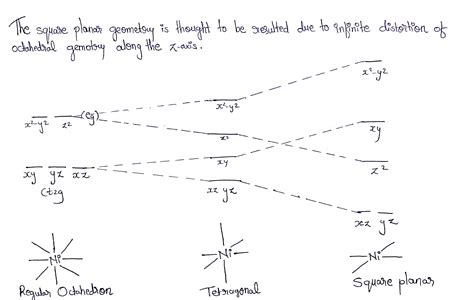 The square planar geometry is thought to be resulted due to infinite distortion of
octahedral gemotry along the z-axis.
x²-y²
x²-y² z² (eg)
x²-y²
z²
xy
xy
z²
xy yz xz
(t2g
xz yz
xz yz
Ni
Ni
Ni
Regular Octahedron
Tetragonal
Square planar